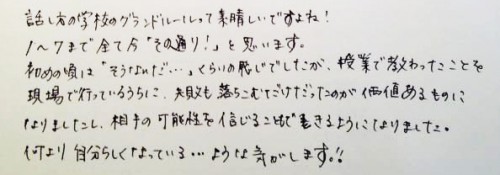 話し方の学校のグランドルールって素晴しいですよね!
1〜7まで全て今「その通り!」と思います。
初めの頃は「そうなんだ…」くらいの感じでしたが、授業で教わったことを
現場で行っているうちに、失敗も落ちこむだけだったのが価値あるものに
なりましたし、相手の可能性を信じることもできるようになりました。
何より自分らしくなっている…ような気がします!!